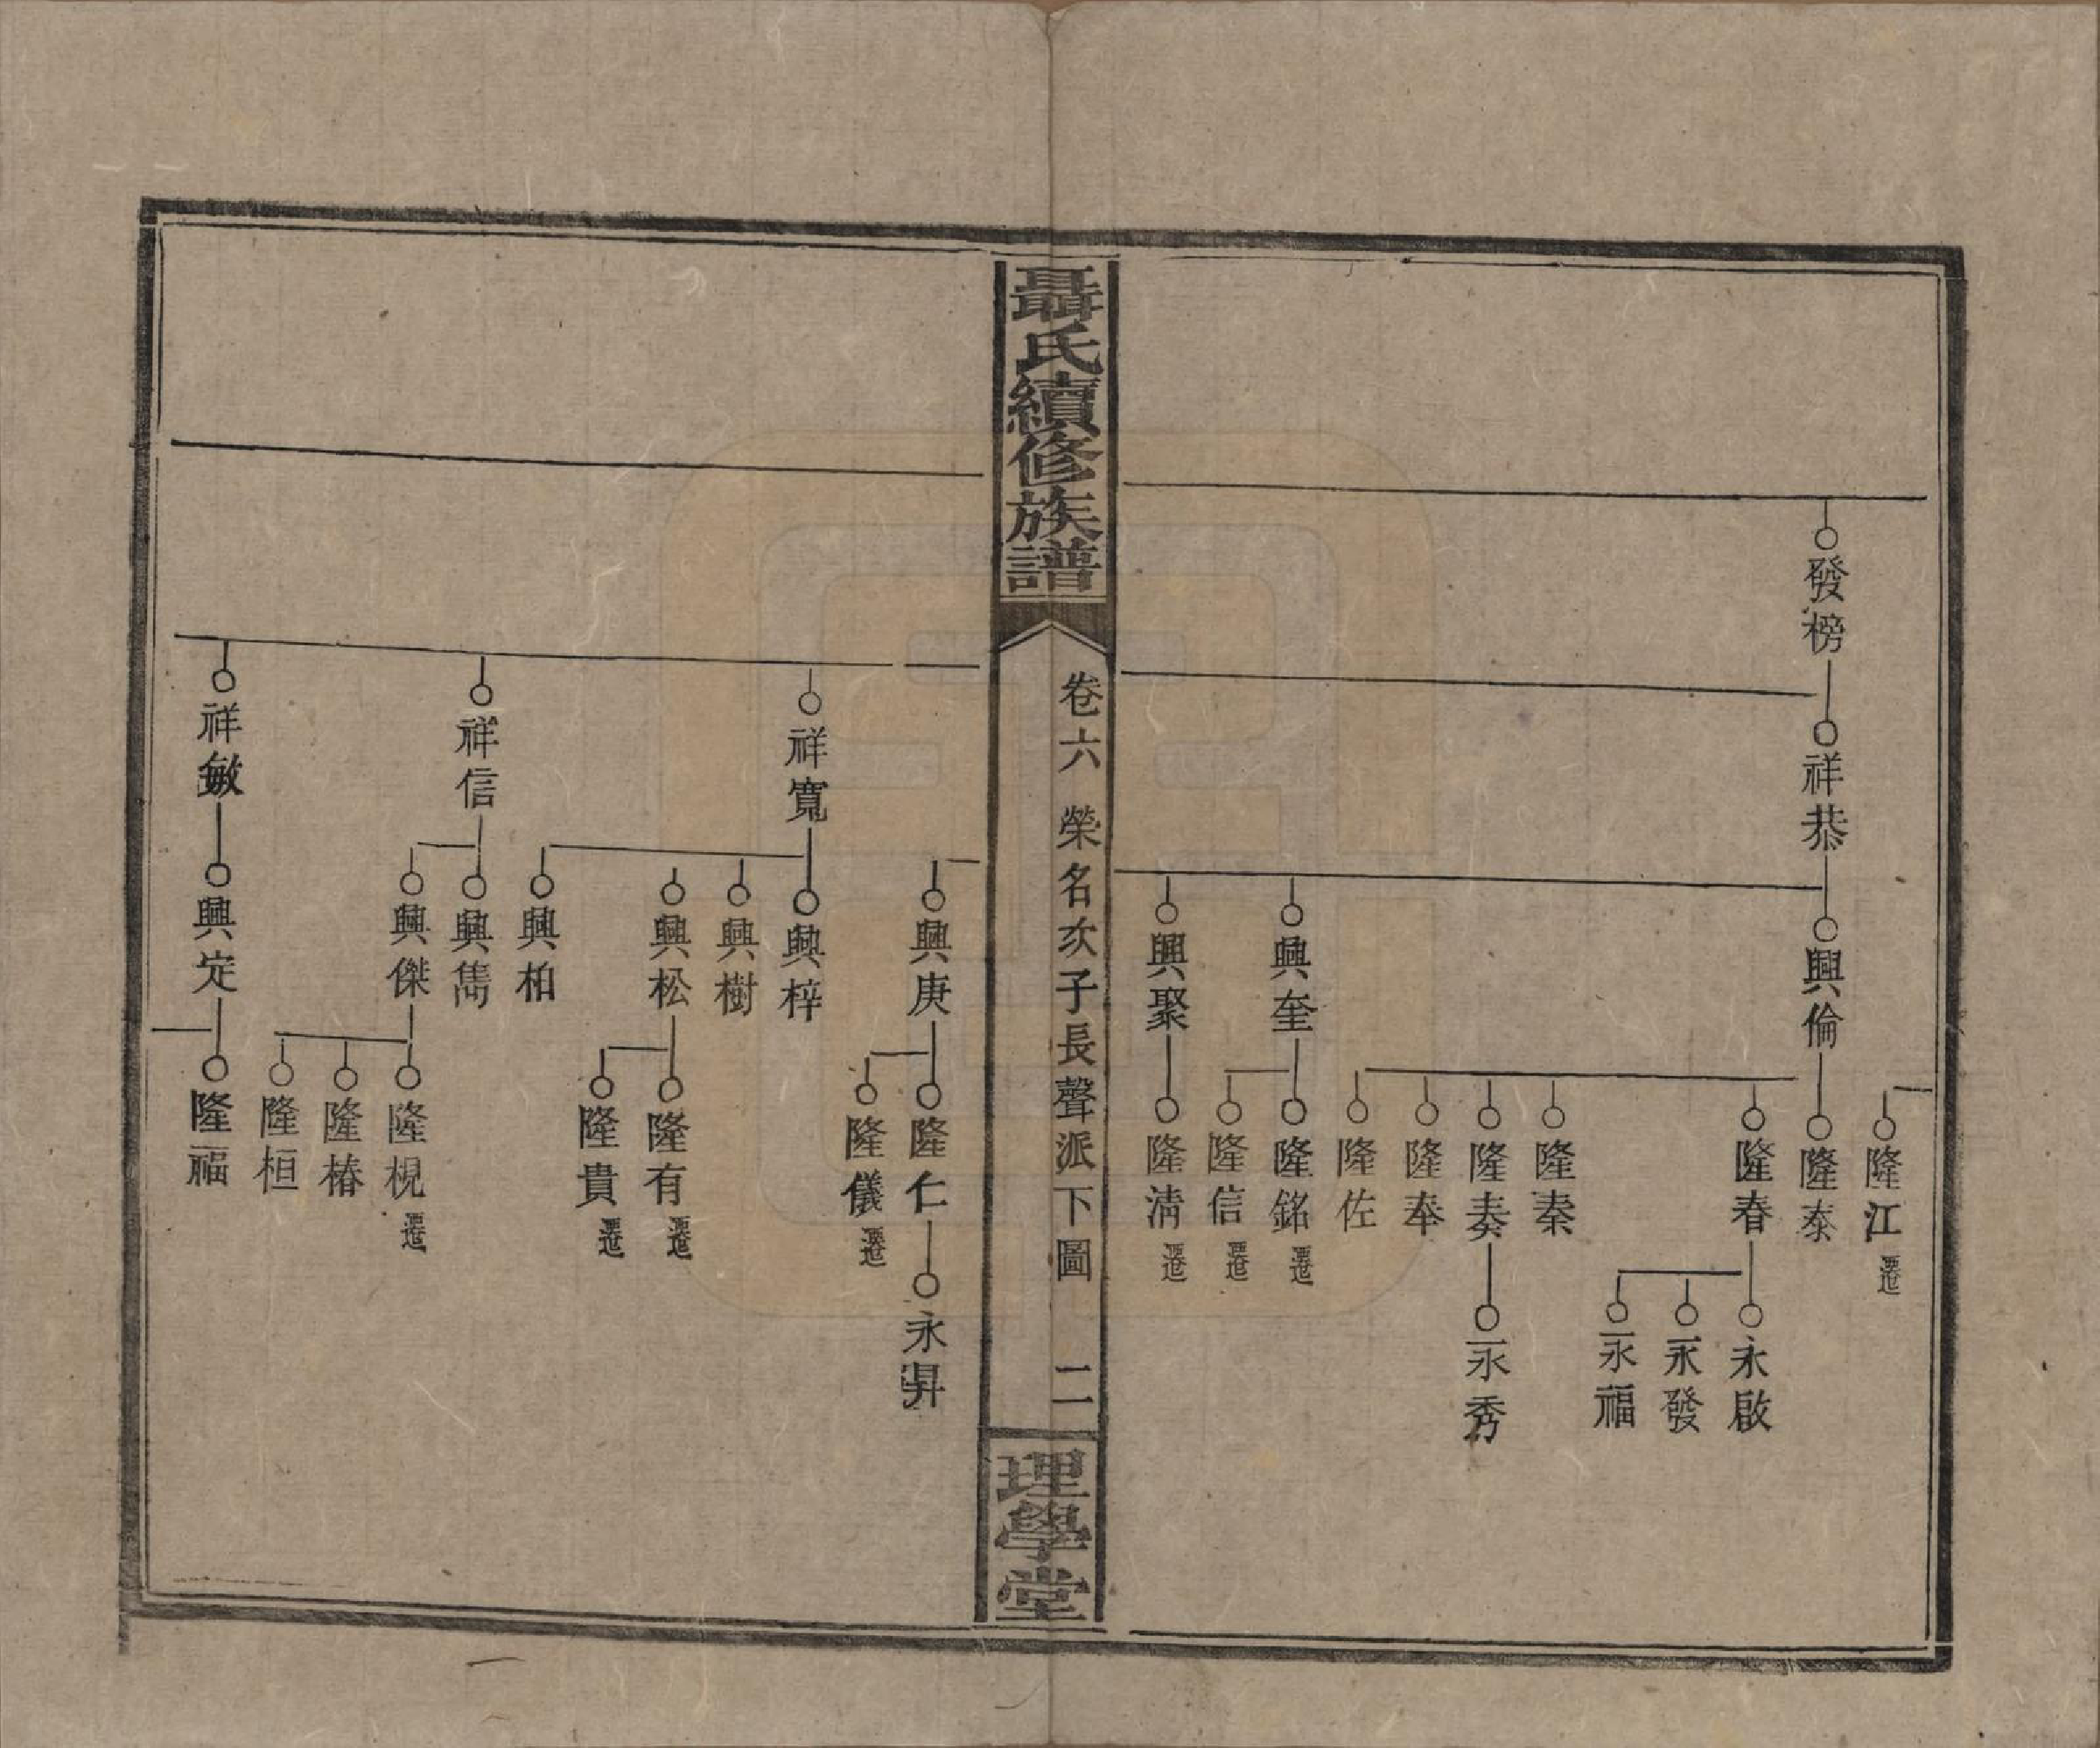 隆江 遷
發榜
祥恭
興倫
隆泰
隆春
永啟
永發
永福
隆秦
隆奏
永秀
隆奉
隆佐
興奎
隆銘 遷
隆信 遷
興聚
隆清 遷
聶氏續修族譜
卷六 榮名次子長聲派下圖 二
理學堂
興庚
隆仁
永昇
隆儀 遷
祥寬
興梓
興樹
興松
隆有 遷
隆貴 遷
興柏
祥信
興雋
興傑
隆梘 遷
隆椿
隆桓
祥敏
興定
隆福